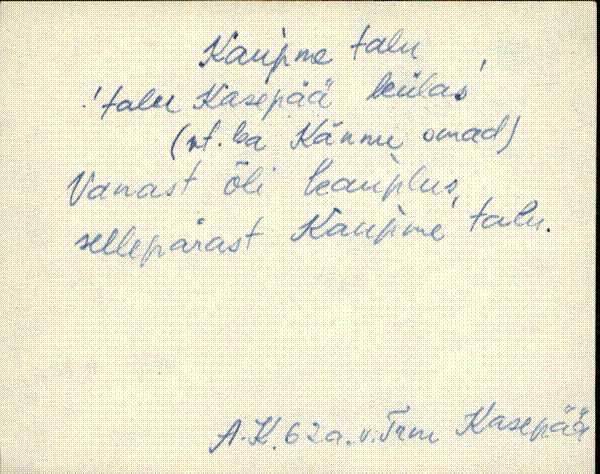 Kaupme talu
! talu Kasepää külas
(vt. ka Kännu omad)
Vanast õli kauplus,
sellepärast Kaupme talu.
A.K. 62 a. v. Trm Kasepää